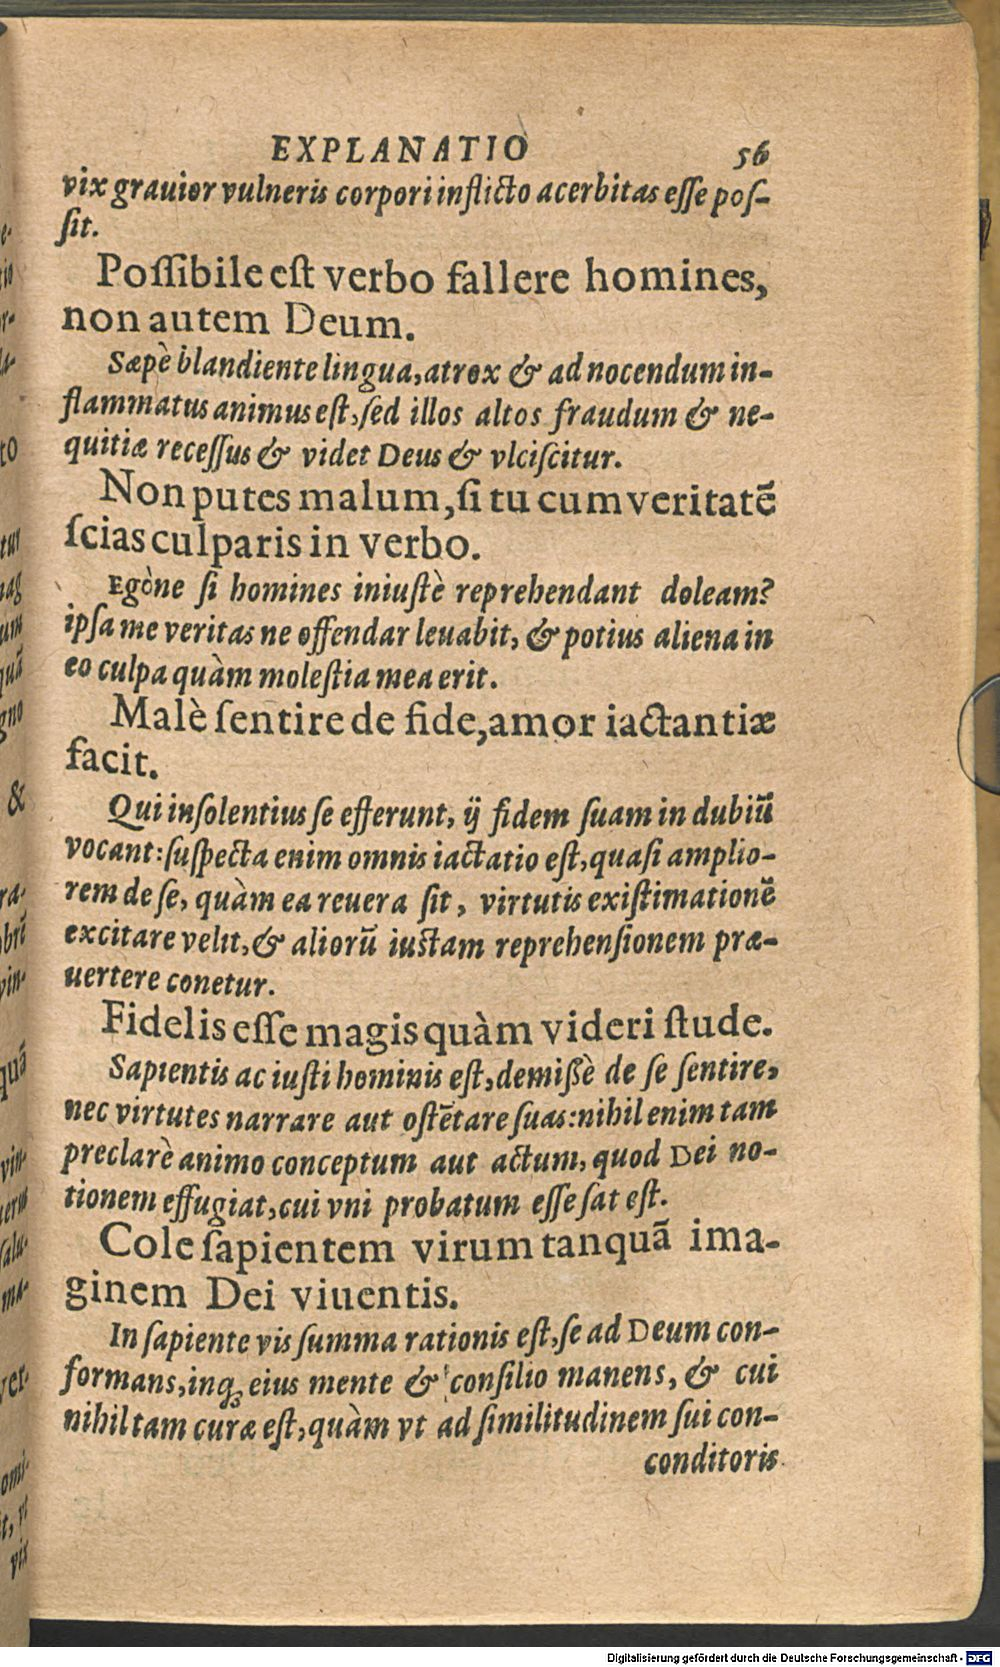 EXPLANATIO 56
vix grauior vulneris corpori inflicto acerbitas esse pos-
sit.
Possibile est verbo fallere homines,
non autem Deum.
Sæpè blandiente lingua, atrox & ad nocendum in-
flammatus animus est, sed illos altos fraudum & ne-
quitiæ recessus & videt Deus & vlciscitur.
Non putes malum, si tu cum veritatē
scias culparis in verbo.
Egòne si homines iniustè reprehendant doleam?
ipsa me veritas ne offendar leuabit, & potius aliena in
eo culpa quàm molestia mea erit.
Malè sentire de fide, amor iactantiæ
facit.
Qui insolentius se efferunt, ij fidem suam in dubiū
vocant: suspecta enim omnis iactatio est, quasi amplio-
rem de se, quàm ea reuera sit, virtutis existimationē
excitare velit, & aliorū iustam reprehensionem præ-
uertere conetur.
Fidelis esse magis quàm videri stude.
Sapientis ac iusti hominis est, demißè de se sentire,
nec virtutes narrare aut ostētare suas: nihil enim tam
preclarè animo conceptum aut actum, quod Dei no-
tionem effugiat, cui vni probatum esse sat est.
Cole sapientem virum tanquā ima-
ginem Dei viuentis.
In sapiente vis summa rationis est, se ad Deum con-
formans, inq; eius mente & consilio manens, & cui
nihil tam curæ est, quàm vt ad similitudinem sui con-
conditoris
Digitalisierung gefördert durch die Deutsche Forschungsgemeinschaft - DFG